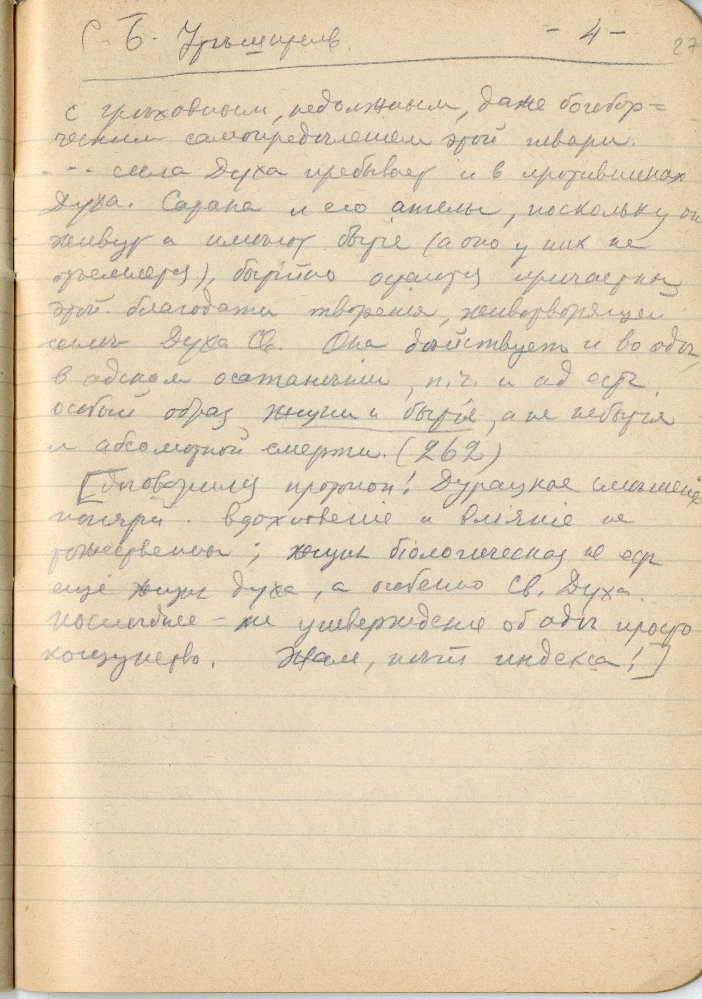 С. Б. Утѣшитель. - 4 - 27
с грѣховным, недолжным, даже богобор=
ческим самоопредѣлением этой твари.
... сила Духа пребывает и в противленіях
Духа. Сатана и его ангелы, поскольку он
живут и имѣют бытіе (а оно у них не
отъемлется), бытійно остаются причастны
этой благодати творения, животворящей
силы Духа Св. Она дѣйствует и во адѣ,
в адском осатанѣнии, п.ч. и ад есть
особый образ жизни и бытія, а не небытія
и абсолютной смерти. (262)
[ протоіоп! Дурацкое смѣшеніе
понятій. вдохновеніе и вліяніе не
тожественны; жизнь біологическая не есть
ещё жизнь духа, а особенно Св. Духа.
послѣднее = же утверждение об адѣ просто
кощунство. Жаль, нѣт индекса!]